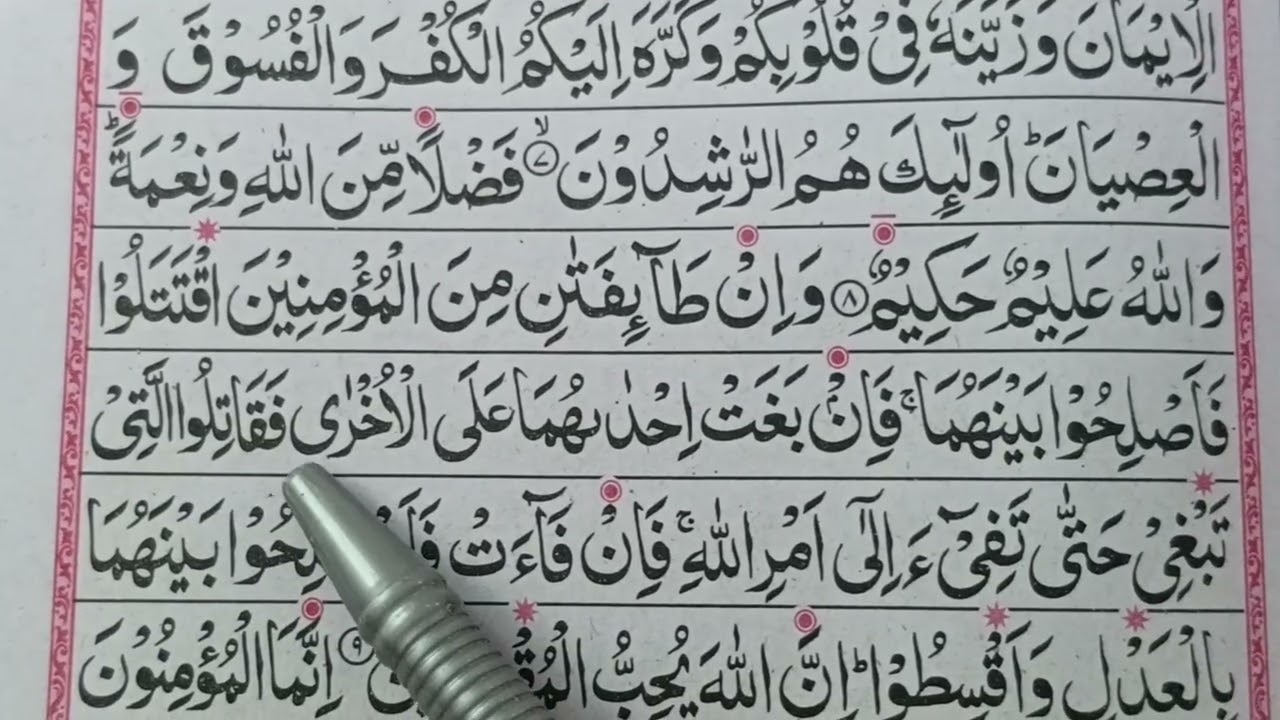 الْاِیْمَانَ وَ زَیَّنَهٗ فِیْ قُلُوْبِكُمْ وَ كَرَّهَ اِلَیْكُمُ الْكُفْرَ وَ الْفُسُوْقَ وَ
الْعِصْیَانَ ؕ اُولٰٓىِٕكَ هُمُ الرّٰشِدُوْنَ ۙ۷ فَضْلًا مِّنَ اللّٰهِ وَ نِعْمَةً ؕ
وَ اللّٰهُ عَلِیْمٌ حَكِیْمٌ ۸ وَ اِنْ طَآىِٕفَتٰنِ مِنَ الْمُؤْمِنِیْنَ اقْتَتَلُوْا
فَاَصْلِحُوْا بَیْنَهُمَا ۚ فَاِنْۢ بَغَتْ اِحْدٰىهُمَا عَلَى الْاُخْرٰى فَقَاتِلُوا الَّتِیْ
تَبْغِیْ حَتّٰى تَفِیْٓءَ اِلٰۤى اَمْرِ اللّٰهِ ۚ فَاِنْ فَآءَتْ بَیْنَهُمَا
بِالْعَدْلِ وَ اَقْسِطُوْا ؕ اِنَّ اللّٰهَ یُحِبُّ ۹ اِنَّمَا الْمُؤْمِنُوْنَ